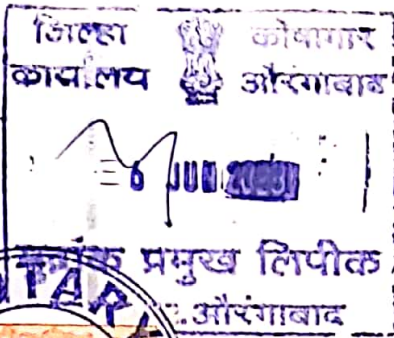 जिल्हा कोषागार
कार्यालय औरंगाबाद
6 JUN
प्रमुख लिपीक
औरंगाबाद